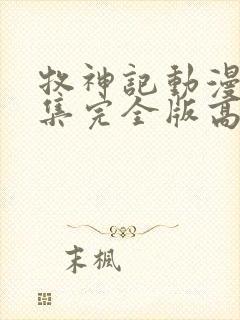 牧神記動漫
集完全版高
末楓